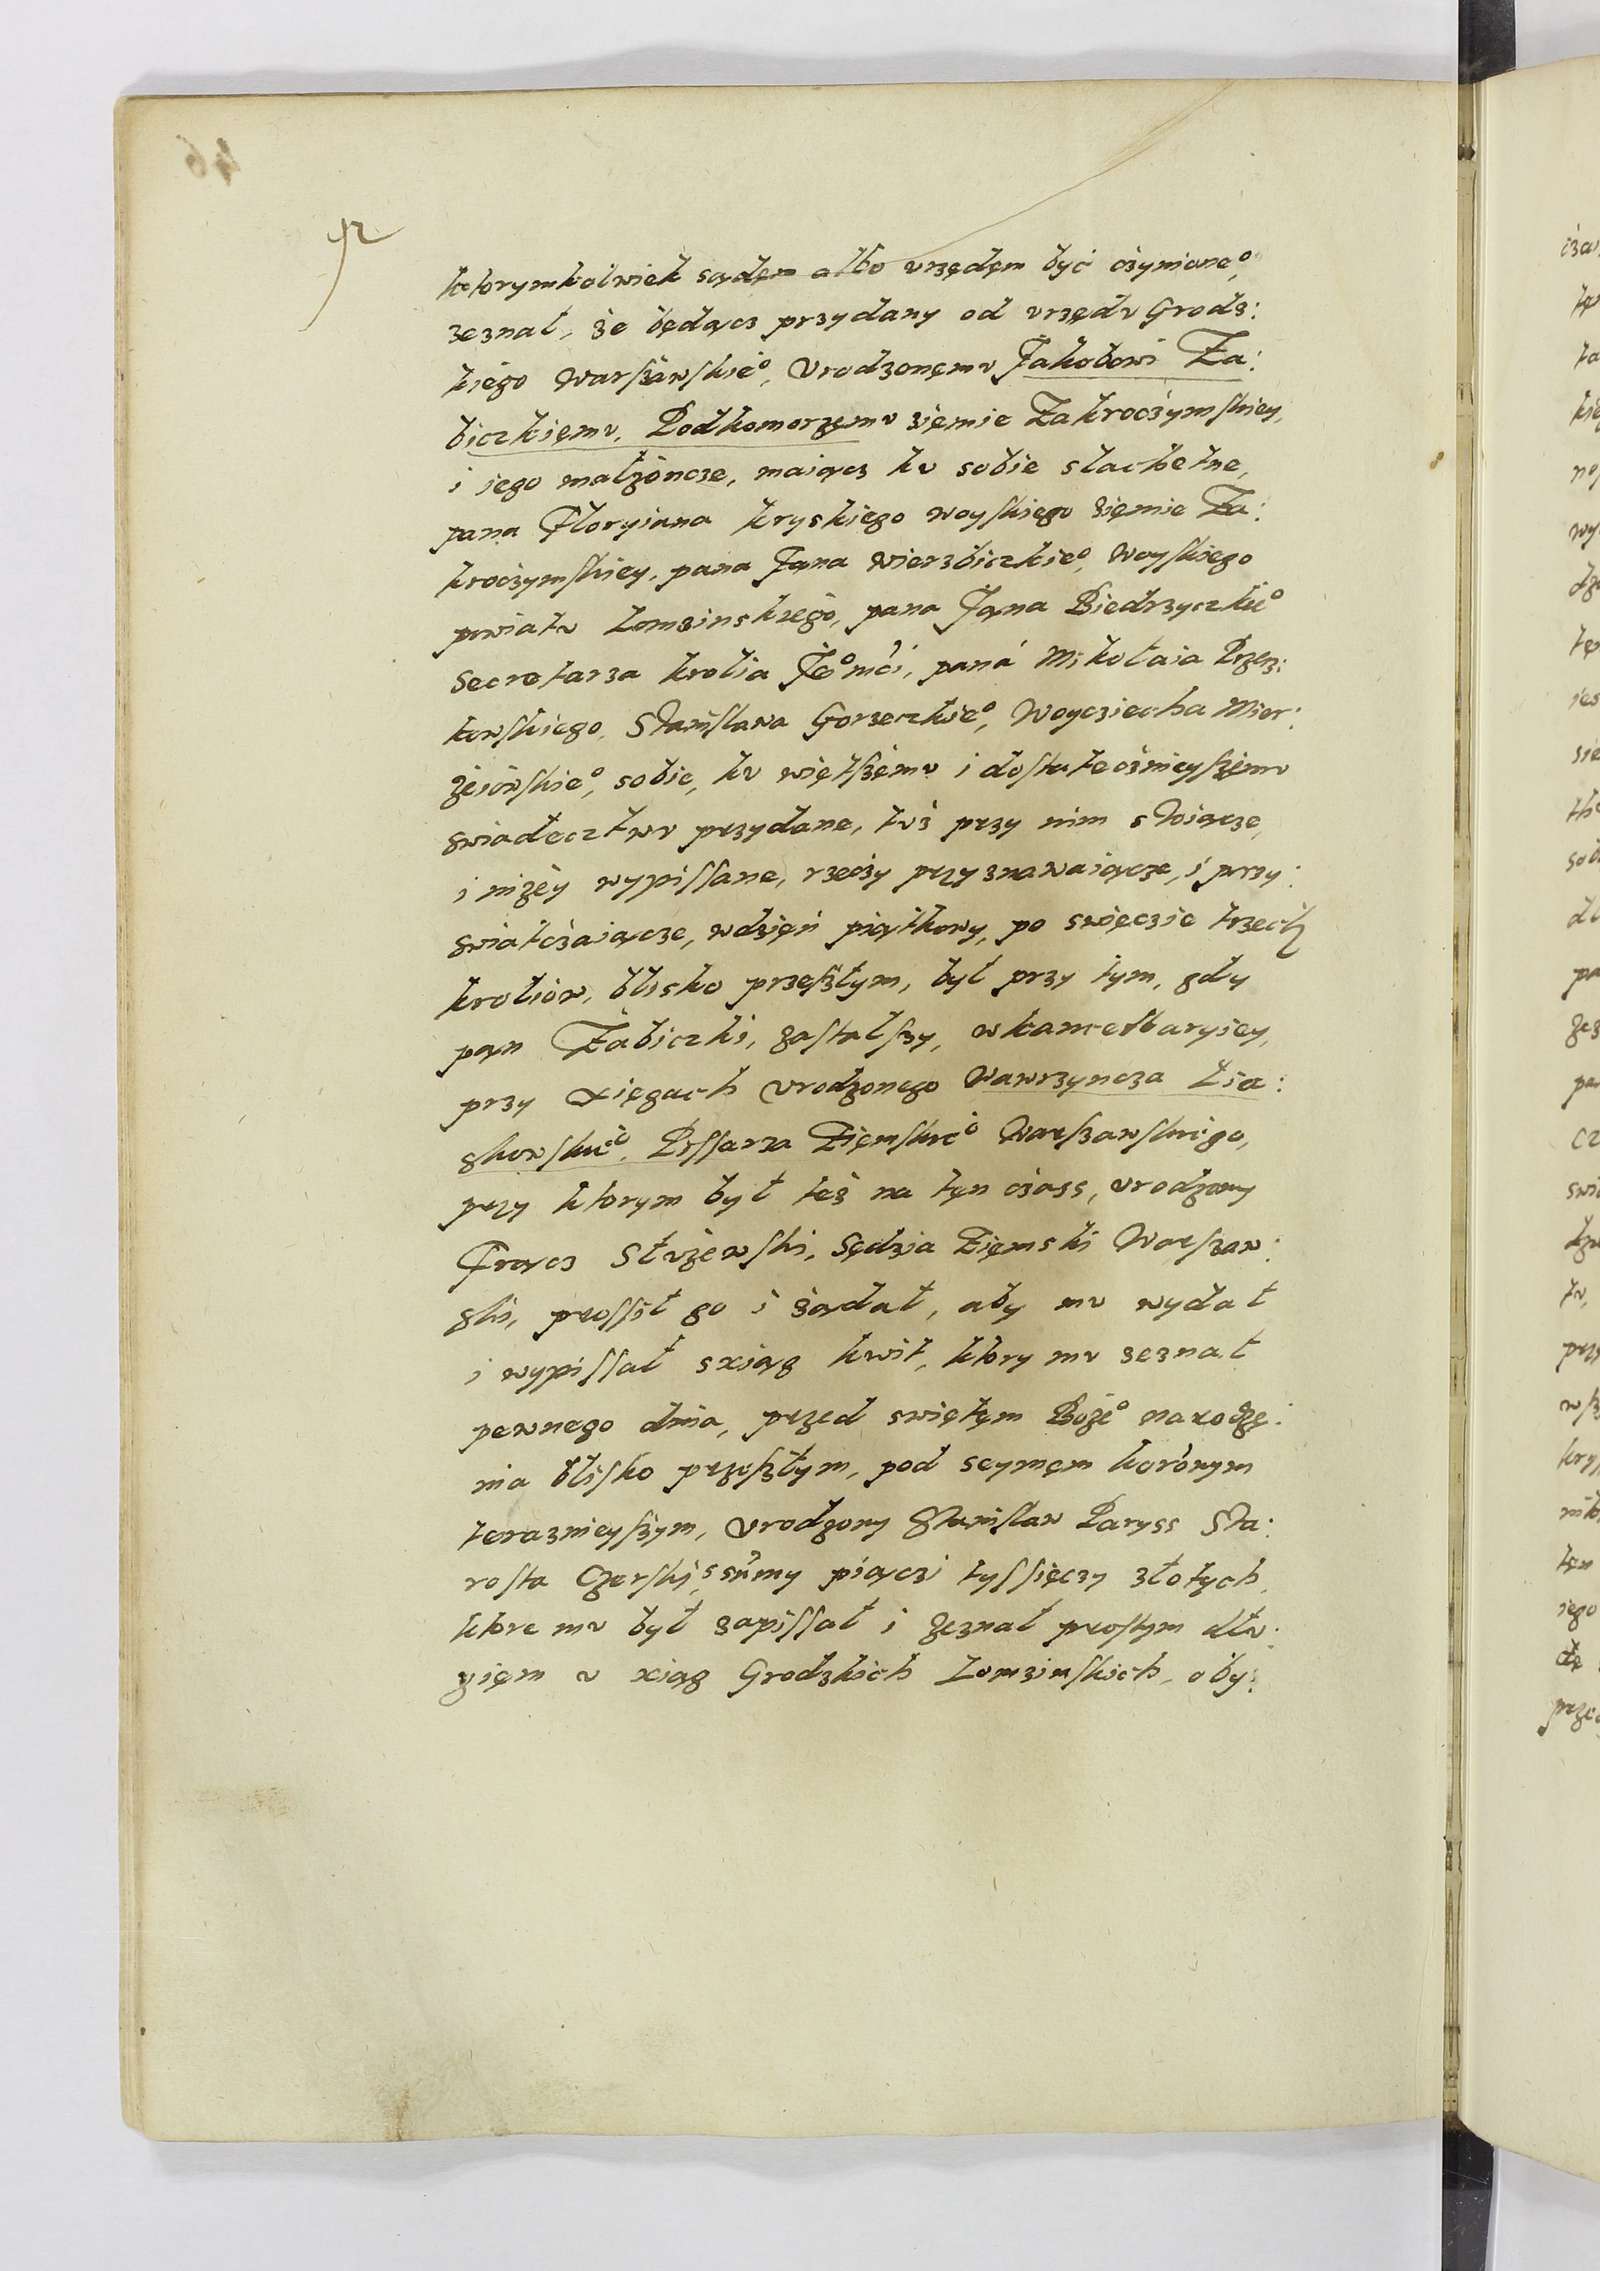 ktorymkolwiek sądem albo vrzędęm być cżynione°,
zeznał, że będącz przydany od vrzędv Grodz:
kiego Warszawskie°, Vrodzonęmv Jakobowi Za:
biczkięmv, Podkomorzęmv zięmie Zakrocżymskiey,
i iego małżoncze, maiącz kv sobie slachetne,
pana Floryiana kryskiego woyskiego zięmie Za:
krocżymskiey, pana Jąna Wierzbiczkie°, Woyskiego
pwiatv Łomzinskiego, pana Jąna Biedrzyczkie°
Secretarza krolia Je° mći, paná Mikołaia
kowskiego, Stanisława Gorzeczkie°, Woyciecha Mier:
żeiowskie°, sobie, kv więtszęmv i dostatecżnieyszęmv
swiadecztwv przydane, tvż przy nim stoiącze,
i niżey wypissane, rzecży przyznawaiącze, i przy:
swiatcżaiącze, wdzięń piątkowy, po swięczie trzech
kroliow, blisko przeszłym, był przy tym, gdy
pąn Zabiczki, zastałszy, w kancellaryiey,
przy xięgach Vrodzonego Wawrzyncza Zia:
skowskie°, Pissarza Zięmskie° Warszawskiego,
przy ktorym był też na tęn cżass, vrodzony
Frącz Słvżewski, Sędzia Zięmski Warszaw:
ski, prossił go i żądał, aby mv wydał
i wypissał sxiąg kwit, ktory mv zeznał
pewnego dnia, przed swiętęm Boże° narodzę:
nia blisko przeszłym, pod seymęm koronym
teraznieyszym, Vrodzony Stanisław Paryss Sta:
rosta Czerski, s summy piączi tyssięczy złotych,
ktore mv był zapissał i zeznał prostym dłv:
gięm v xiąg Grodzkich Łomzinskich, oby: